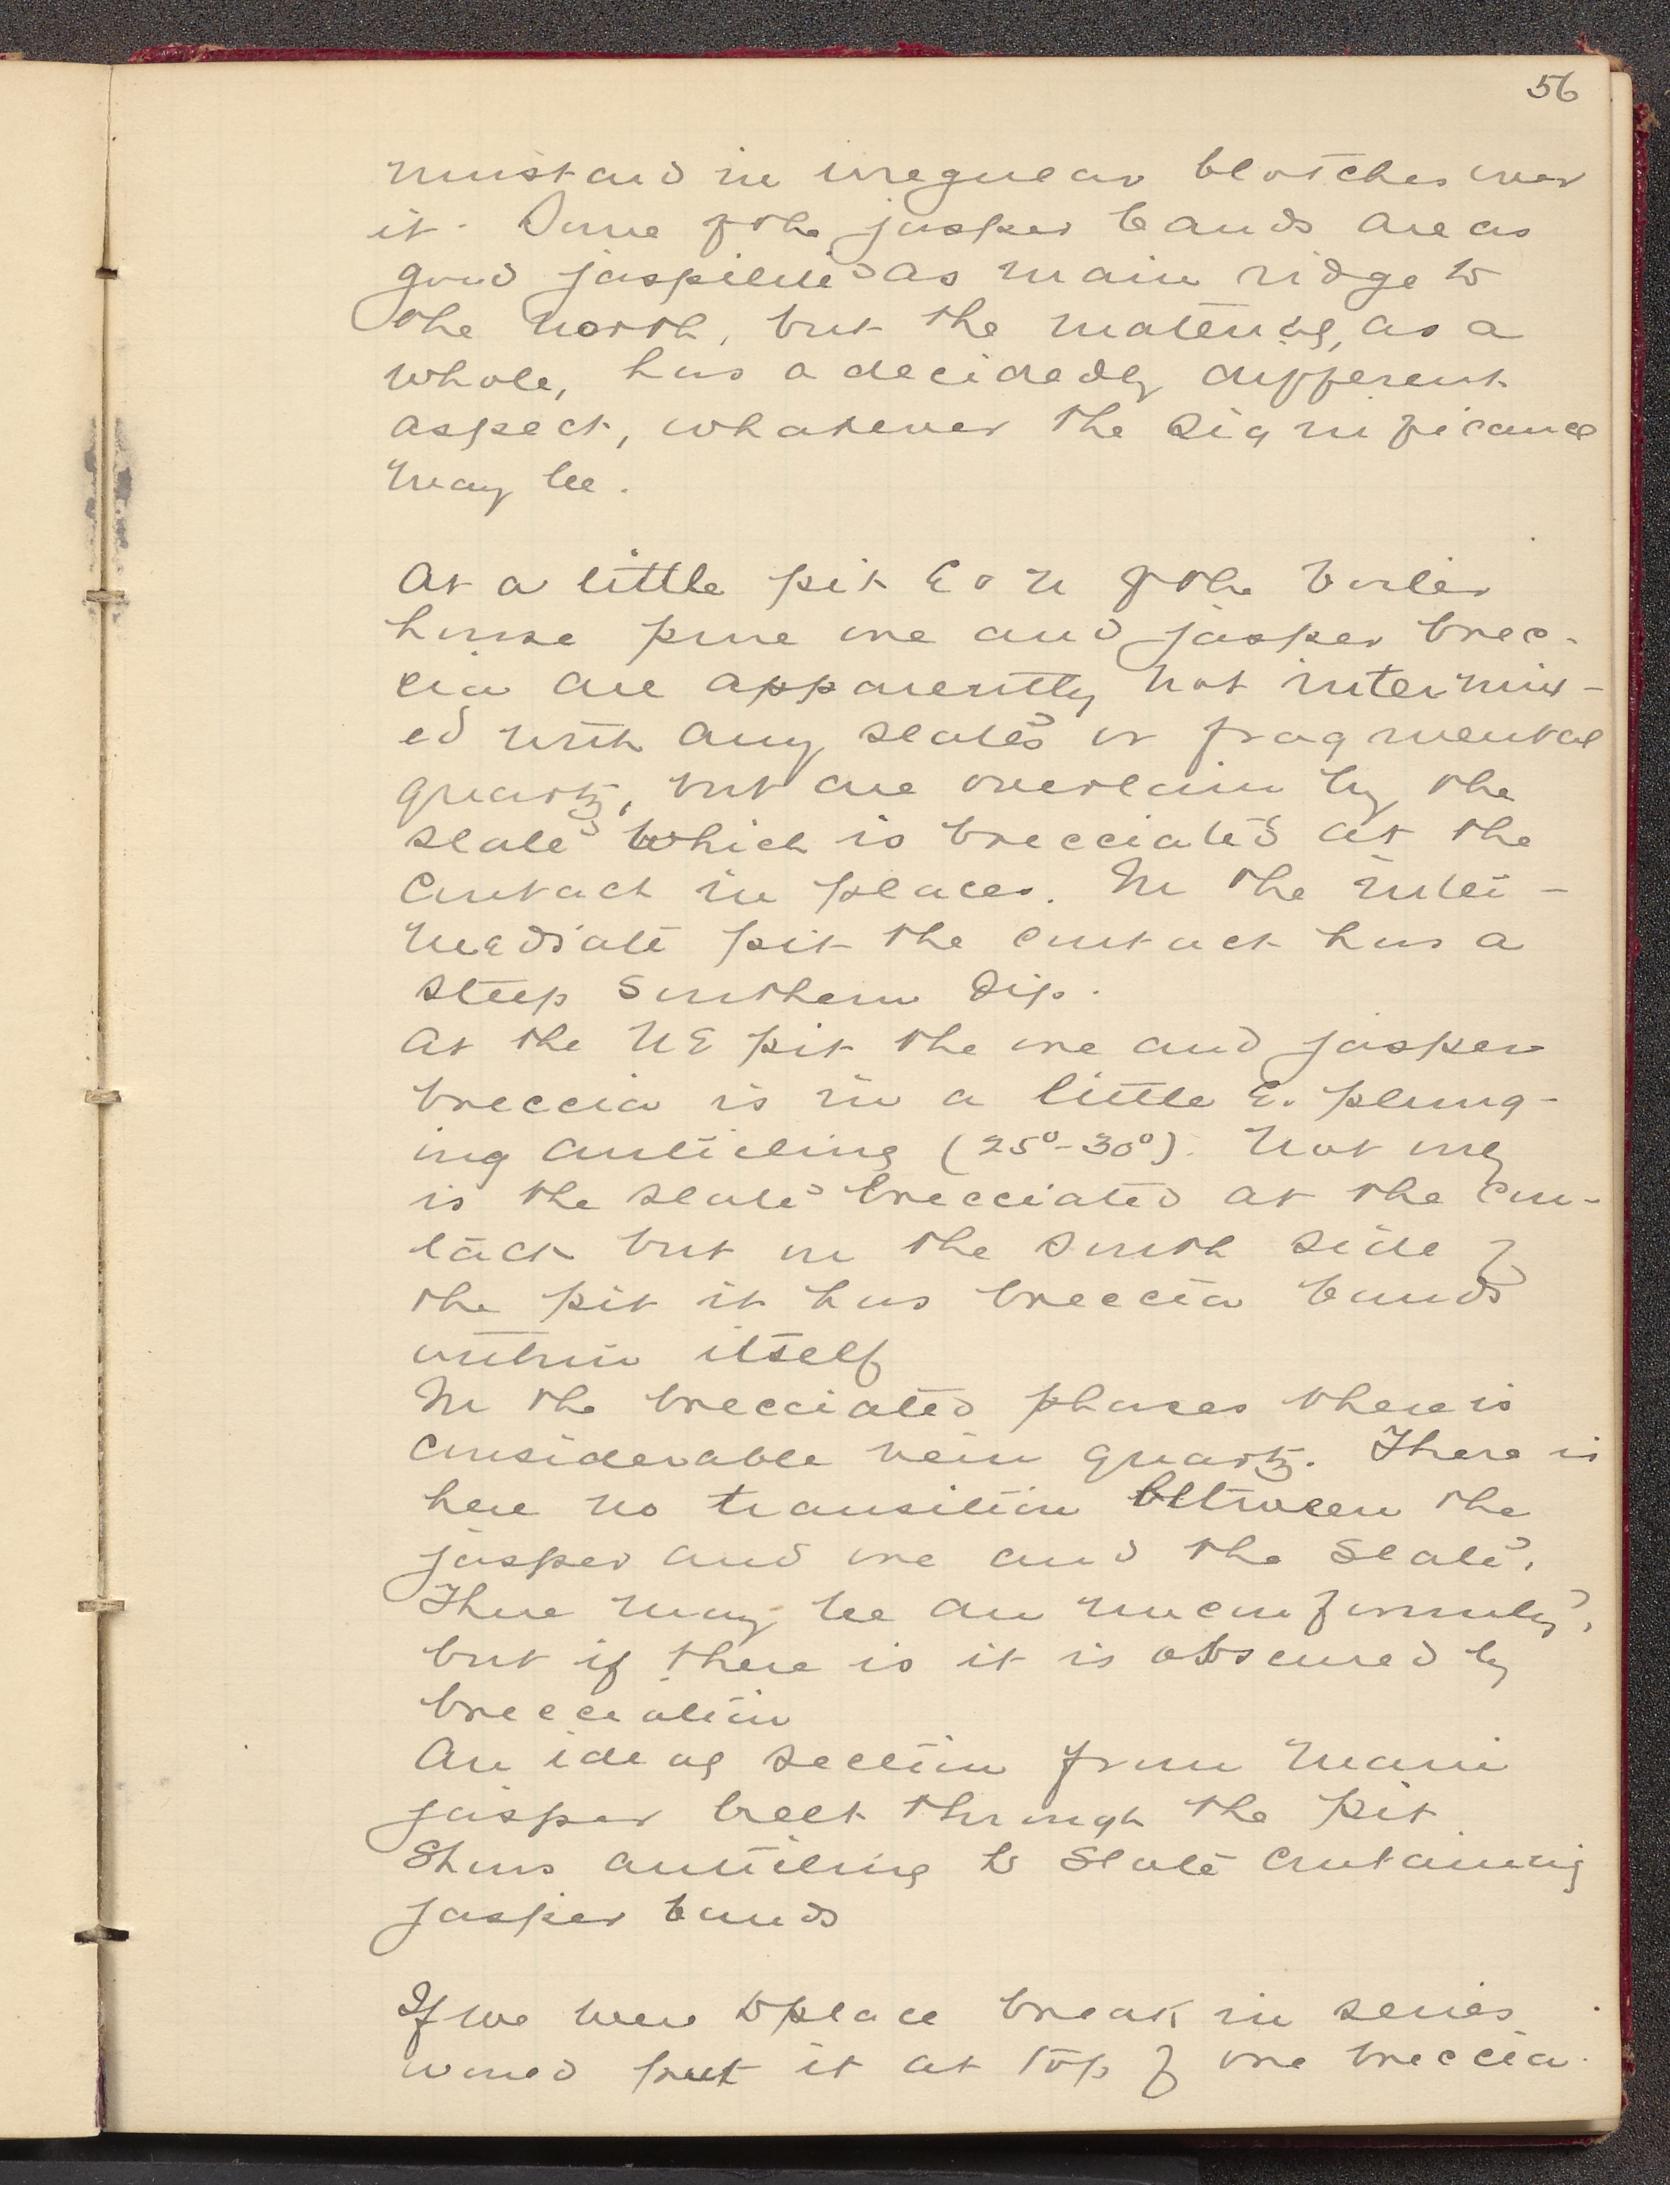 56
mustard in irregular blotches over
it. Some of the jasper bands are as
good jaspilite as main ridge to
the north, but the material, as a
whole, has a decidedly different
aspect, whatever the significance
may be.
At a little pit E of N of the boiler
house pure ore and jasper brec-
cia are apparently not intermix-
ed with any slate or fragmental
quartz, but are overlain by the
slate which is brecciated at the
contact in places. In the inter-
mediate pit the contact has a
steep southern dip.
At the NE pit the ore and jasper
breccia is in a little E. plung-
ing anticline (25°-30°). Not only
is the slate brecciated at the con-
tact but on the south side of
the pit it has breccia bands
within itself
In the brecciated phases there is
considerable vein quartz. There is
here no transition between the
jasper and ore and the slate.
There may be an unconformity,
but if there is it is obscured by
brecciation
An ideal section from main
jasper belt through the pit
shows anticline to slate containing
jasper bands
If we were to place break in series
would put it at top of ore breccia.